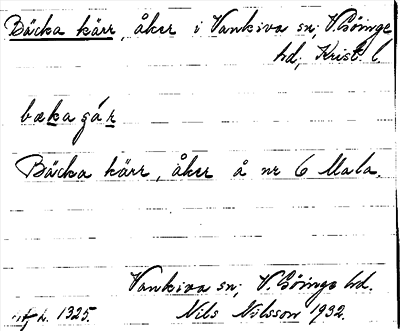 Bäcka kärr, åker i Vankiva sn; V. Göinge
hd; Krist. l
bækagár
Bäcka kärr, åker å nr 6 Mala.
Vankiva sn; V. Göinge hd.
1325. Nils Nilsson 1932.